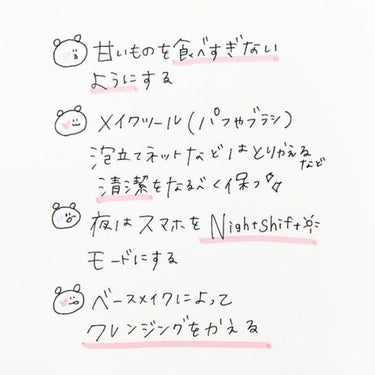 甘いものを食べすぎない
ようにする
メイクツール(パフやブラシ)
泡立てネットなどはとりかえるなど
清潔をなるべく保つ
夜はスマホをNightshift
モードにする
ベースメイクによって
クレンジングをかえる